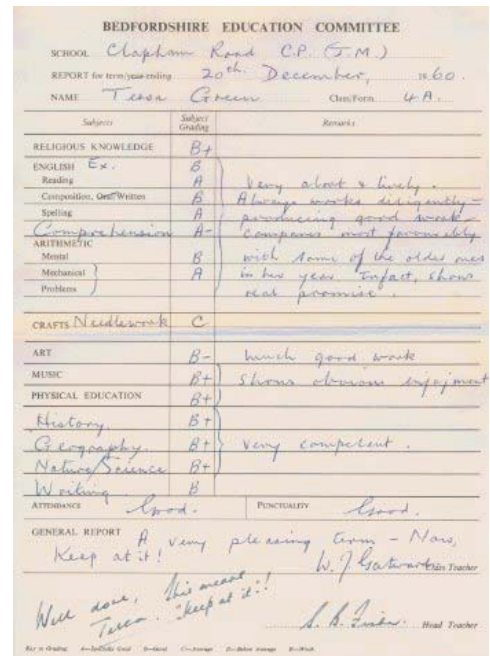 BEDFORDSHIRE EDUCATION COMMITTEE
SCHOOL Clapham Road C.P. (J.M.)
REPORT for term/year ending 20th December, 1960.
NAME Tessa Green Class/Form 4A.
Subjects Subject Grading Remarks
RELIGIOUS KNOWLEDGE B+
ENGLISH Ex. B
Reading A Very alert & lively.
Composition, Oral/Written B Always works diligently –
Spelling A producing good work –
Comprehension A- compares most favourably
ARITHMETIC
Mental B with some of the older ones
Mechanical A in her year. Infact, shows
Problems real promise.
CRAFTS Needlework C
ART B- Much good work
MUSIC B+ Shows obvious enjoyment
PHYSICAL EDUCATION B+
History B+
Geography. B+ Very competent.
Nature/Science B+
Writing B
ATTENDANCE Good. PUNCTUALITY Good.
GENERAL REPORT A very pleasing term – Now,
Keep at it!
W. J. Class Teacher
Well done, this means
Tessa. "keep at it"!
S. B. Head Teacher
Key to Grading A—Specially Good B—Good C—Average D—Below Average E—Weak